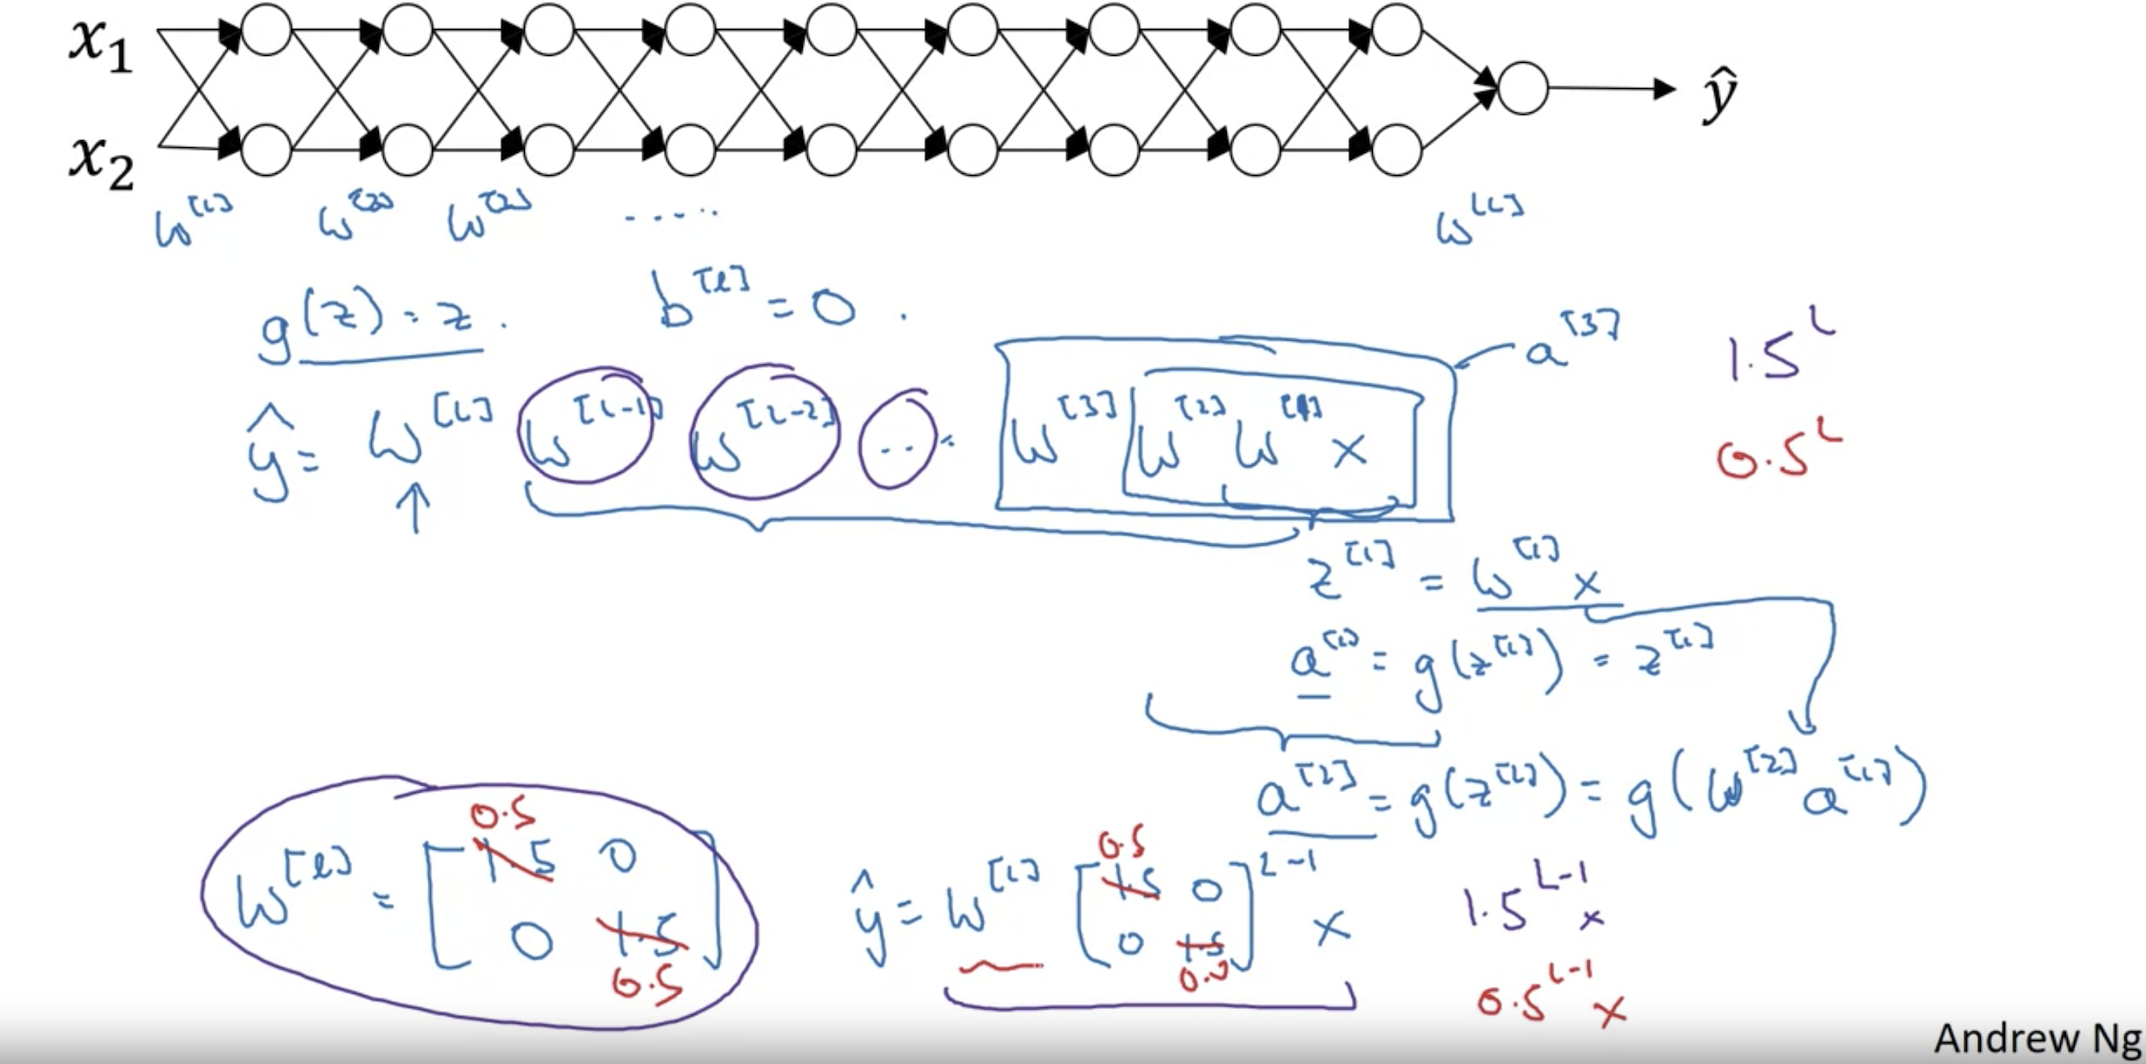 x₁
x₂
ŷ
W^[1] W^[2] W^[3] ..... W^[L]
g(z) = z. b^[l] = 0.
a^[3]
1.5^L
ŷ = W^[L] W^[L-1] W^[L-2] ... W^[3] W^[2] W^[1] x
0.5^L
z^[1] = W^[1] x
a^[1] = g(z^[1]) = z^[1]
a^[2] = g(z^[2]) = g(W^[2] a^[1])
0.5
W^[l] = [1.5 0
0 1.5]
0.5
0.5
ŷ = W^[L] [1.5 0
0 1.5]^L-1 x
0.5
1.5^L-1 x
0.5^L-1 x
Andrew Ng